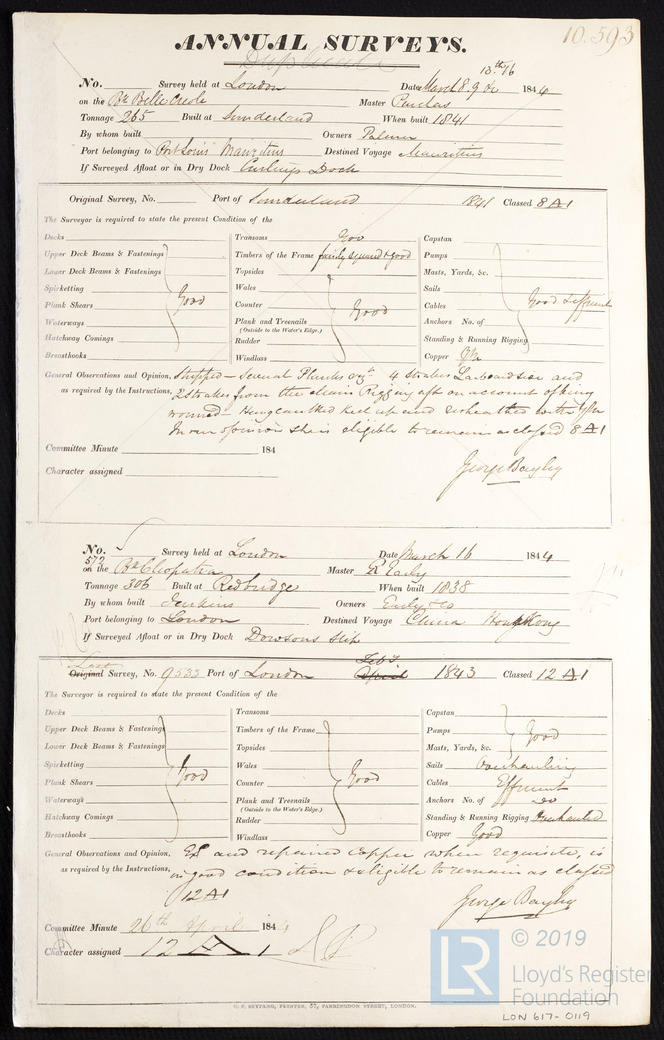 10.593
ANNUAL SURVEYS.
Duplicate
No. Survey held at London Date March 8. 9 & 13.th 16 1844
on the Bk Belle Creole Master
Tonnage 265 Built at Sunderland When built 1841
By whom built Owners Palmer
Port belonging to Port Louis Mauritius Destined Voyage Mauritius
If Surveyed Afloat or in Dry Dock Curlings Dock
Original Survey, No. Port of Sunderland 1841 Classed 8 A 1
The Surveyor is required to state the present Condition of the
Decks Transoms Capstan
Upper Deck Beams & Fastenings Timbers of the Frame fairly squared & good Pumps
Lower Deck Beams & Fastenings Topsides Masts, Yards, &c.
Spirketting Wales Sails
Plank Shears Good Counter Good Cables Good & efficient
Waterways Plank and Treenails Anchors No. of
(Outside to the Water's Edge.)
Hatchway Comings Rudder Standing & Running Rigging
Breasthooks Windlass Copper
General Observations and Opinion, Stripped — Several Planks 4 strakes Larboard side and
as required by the Instructions, 2 strakes from the Main Rigging aft on account of being
wormed — caulked keel up and resheathed with
In our opinion she is eligible to remain as classed 8 A 1
Committee Minute 184
George Bayley
Character assigned
No. Survey held at London Date March 16 1844
572
on the Bk Cleopatra Master R Early
Tonnage 306 Built at Redbridge When built 1838
By whom built Jenkins Owners Early & Co
Port belonging to London Destined Voyage China Hong Kong
If Surveyed Afloat or in Dry Dock Dowsons Slip
Last Feby
Original Survey, No. 9533 Port of London April 1843 Classed 12 A 1
The Surveyor is required to state the present Condition of the
Decks Transoms Capstan
Upper Deck Beams & Fastenings Timbers of the Frame Pumps Good
Lower Deck Beams & Fastenings Topsides Masts, Yards, &c.
Spirketting Wales Sails Overhauling
Plank Shears Good Counter Good Cables Efficient
Waterways Plank and Treenails Anchors No. of Do
(Outside to the Water's Edge.)
Hatchway Comings Rudder Standing & Running Rigging Overhauled
Breasthooks Windlass Copper Good
General Observations and Opinion, and repaired Copper when requisite, is
as required by the Instructions, in good condition & eligible to remain as classed
12 A 1
George Bayley
Committee Minute 26th April 1844
Character assigned 12 A 1
LR © 2019
Lloyd's Register
Foundation
C. F. SEYFANG, PRINTER, 57, FARRINGDON STREET, LONDON.
LON 617-0119